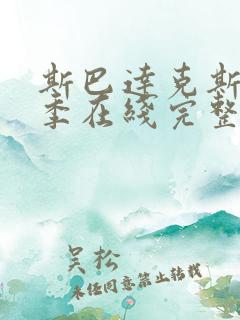 斯巴达克斯
季在线完整
吴松
未经同意禁止转载